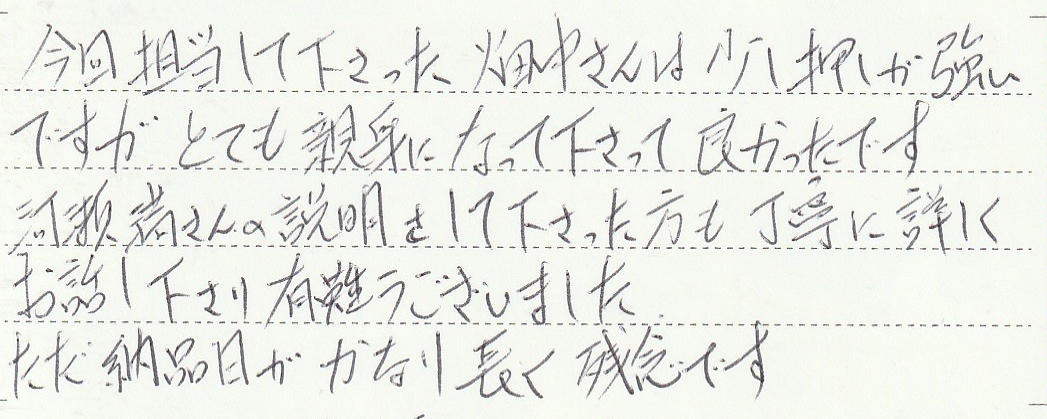 今回担当して下さった畑中さんは少し押しが強い
ですがとても親身になって下さって良かったです
さんの説明をして下さった方も丁寧に詳しく
お話し下さり有難うございました
ただ納品日がかなり長く残念です